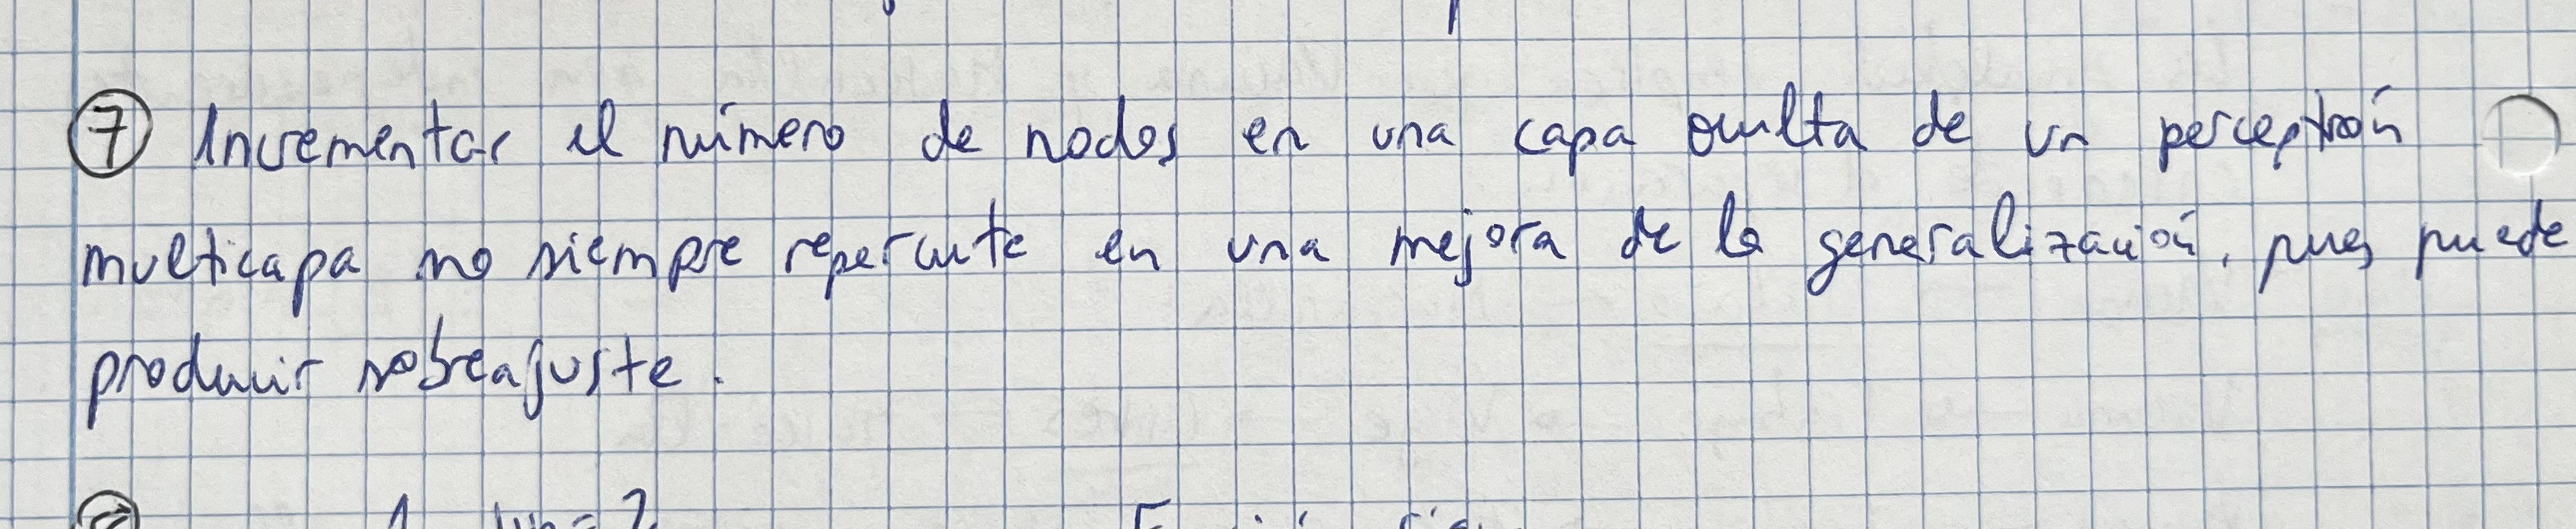 7 Incrementar el número de nodos en una capa oculta de un perceptrón
multicapa no siempre repercute en una mejora de la generalización, pues puede
producir sobreajuste.